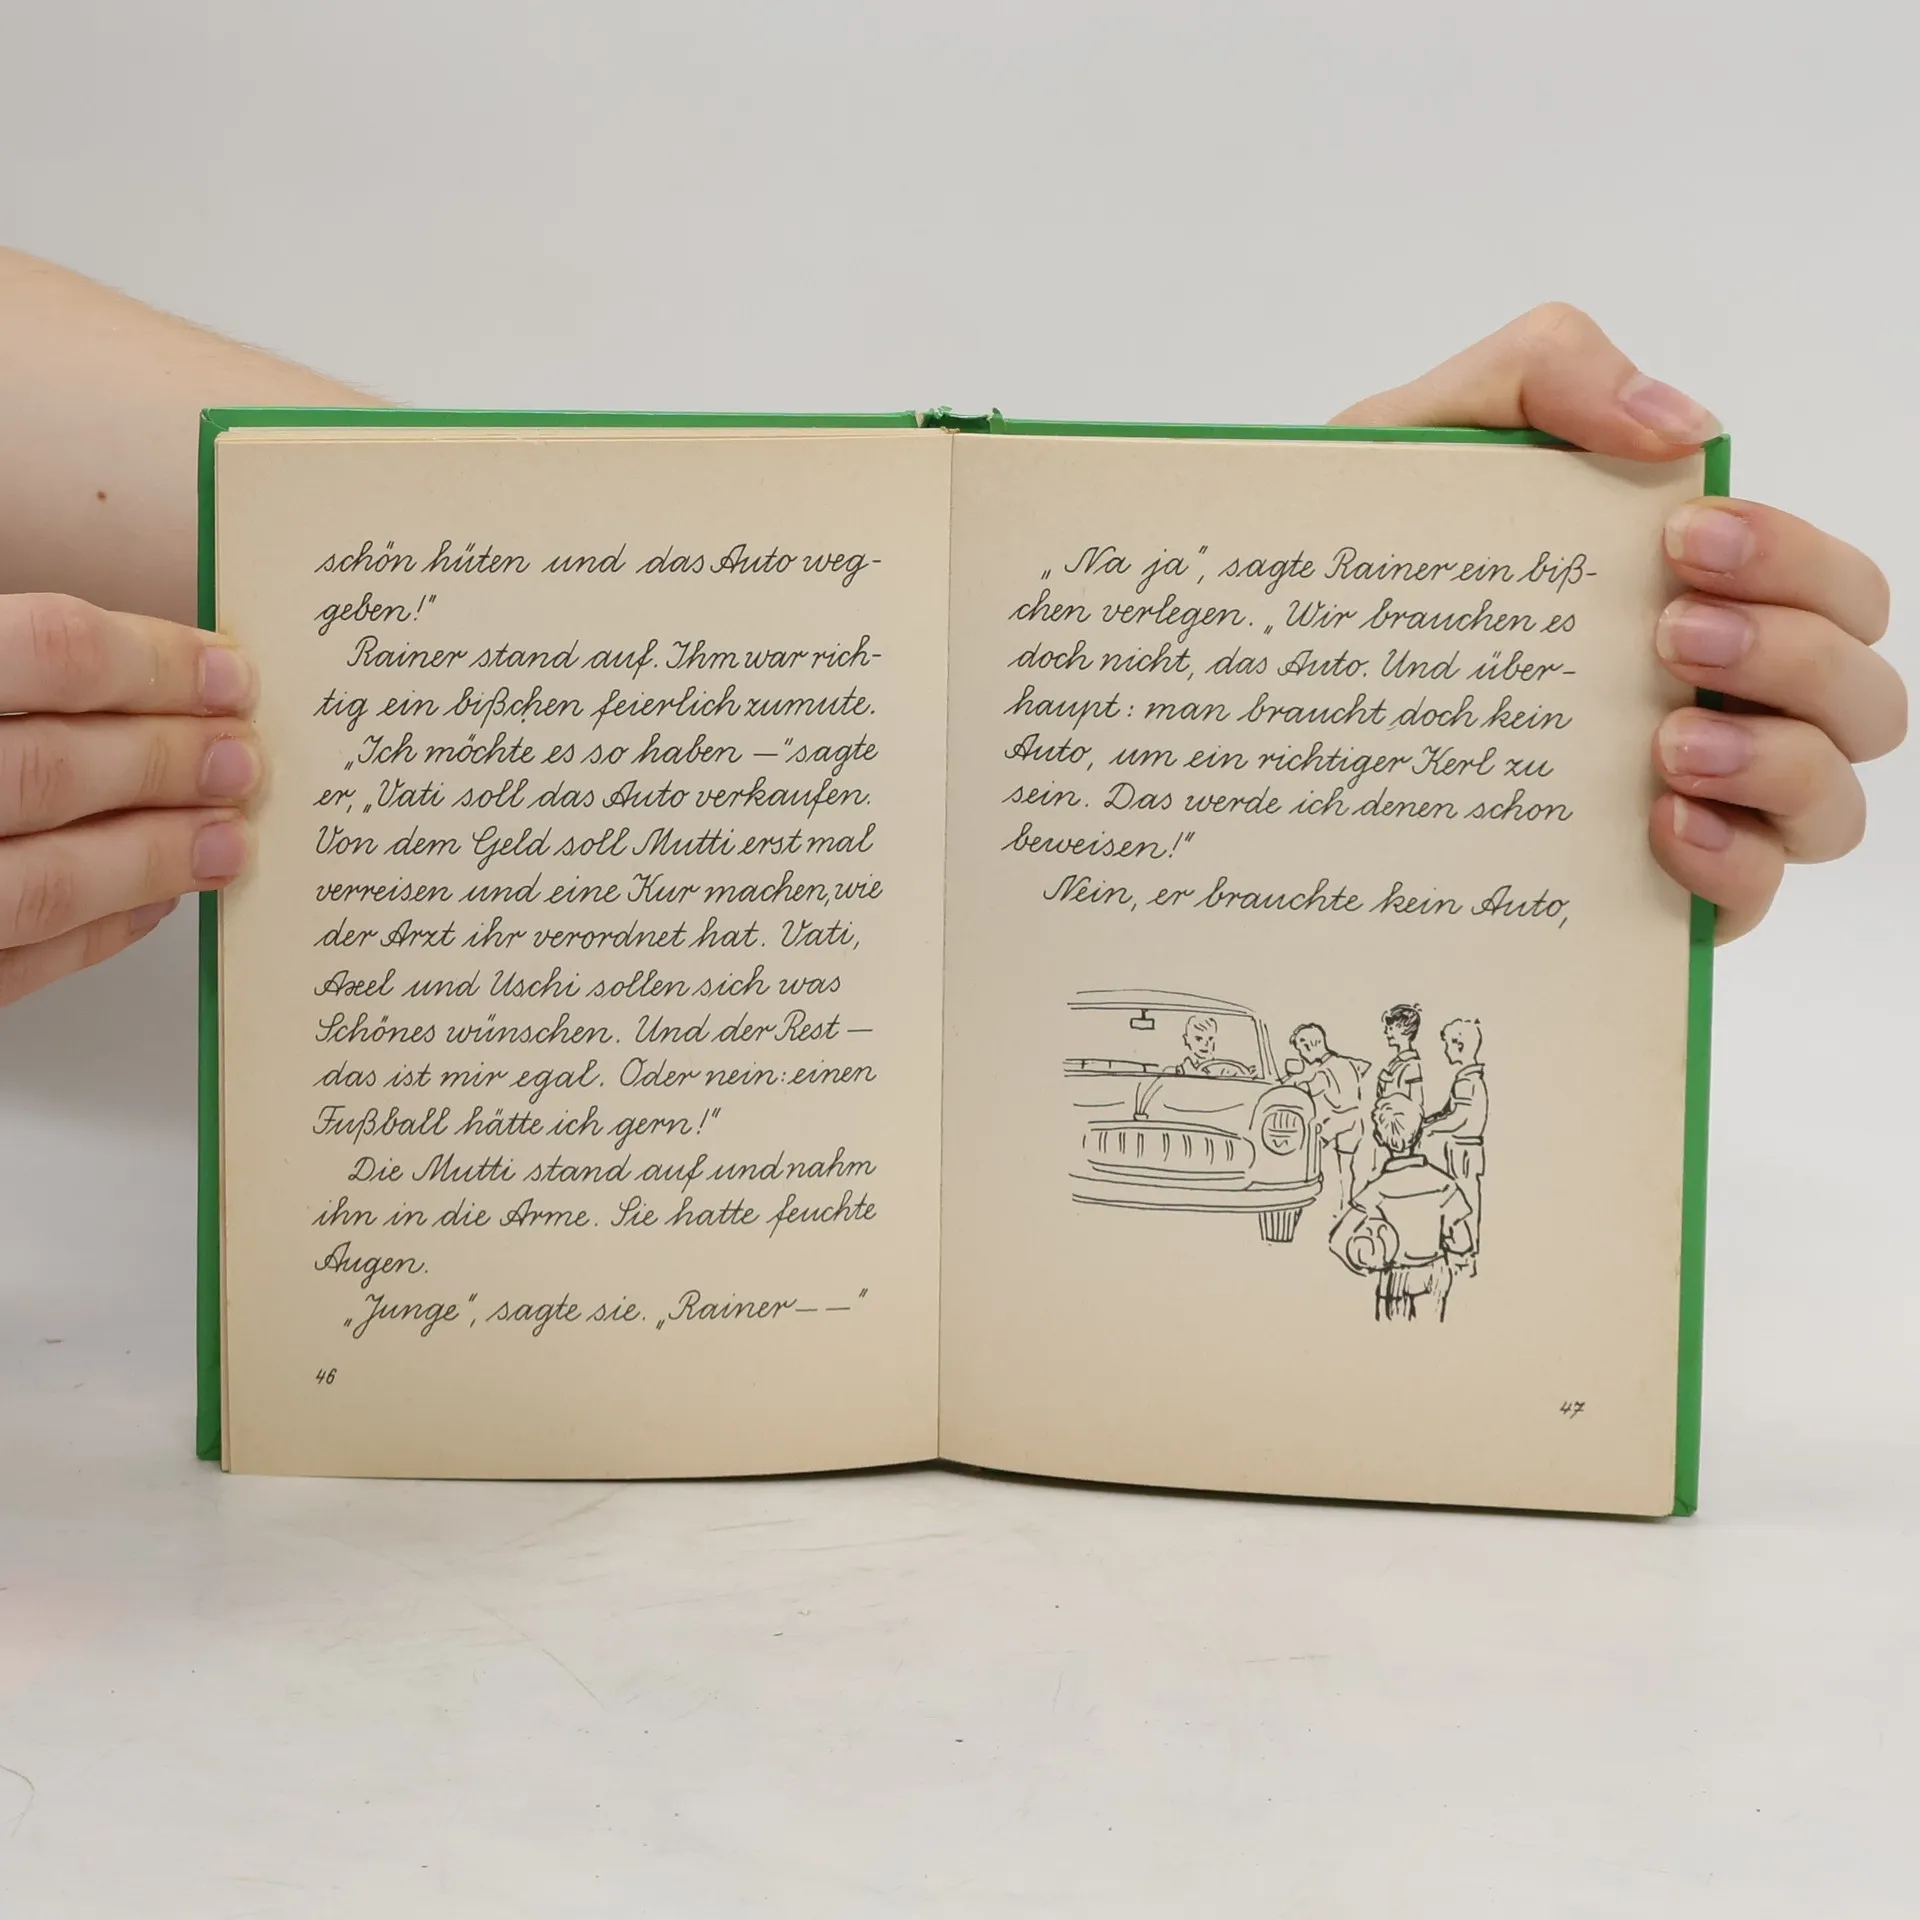 schön hüten und das Auto weg-
geben!"
Rainer stand auf. Ihm war rich-
tig ein bißchen feierlich zumute.
„Ich möchte es so haben —" sagte
er, „Vati soll das Auto verkaufen.
Von dem Geld soll Mutti erst mal
verreisen und eine Kur machen, wie
der Arzt ihr verordnet hat. Vati,
Axel und Uschi sollen sich was
Schönes wünschen. Und der Rest —
das ist mir egal. Oder nein: einen
Fußball hätte ich gern!"
Die Mutti stand auf und nahm
ihn in die Arme. Sie hatte feuchte
Augen.
„Junge", sagte sie. „Rainer — —"
46
„Na ja", sagte Rainer ein biß-
chen verlegen. „Wir brauchen es
doch nicht, das Auto. Und über-
haupt: man braucht doch kein
Auto, um ein richtiger Kerl zu
sein. Das werde ich denen schon
beweisen!"
Nein, er brauchte kein Auto,
47